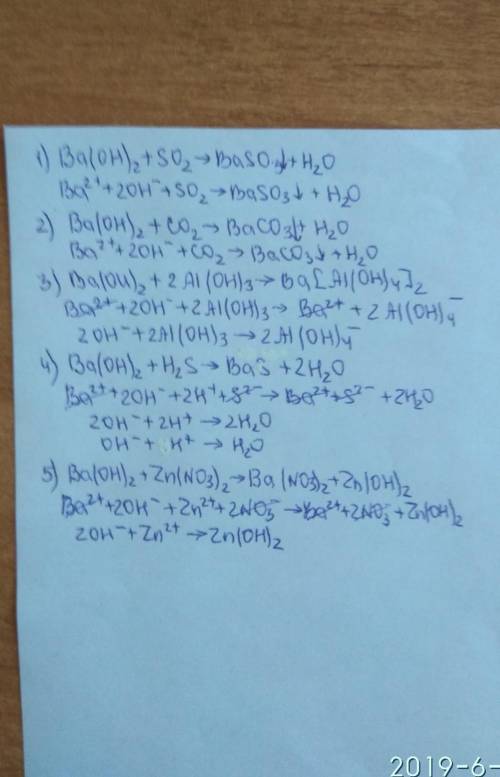 1) Ba(OH)₂ + SO₂ → BaSO₃↓ + H₂O
Ba²⁺ + 2OH⁻ + SO₂ → BaSO₃↓ + H₂O
2) Ba(OH)₂ + CO₂ → BaCO₃↓ + H₂O
Ba²⁺ + 2OH⁻ + CO₂ → BaCO₃↓ + H₂O
3) Ba(OH)₂ + 2Al(OH)₃ → Ba[Al(OH)₄]₂
Ba²⁺ + 2OH⁻ + 2Al(OH)₃ → Ba²⁺ + 2Al(OH)₄⁻
2OH⁻ + 2Al(OH)₃ → 2Al(OH)₄⁻
4) Ba(OH)₂ + H₂S → BaS + 2H₂O
Ba²⁺ + 2OH⁻ + 2H⁺ + S²⁻ → Ba²⁺ + S²⁻ + 2H₂O
2OH⁻ + 2H⁺ → 2H₂O
OH⁻ + H⁺ → H₂O
5) Ba(OH)₂ + Zn(NO₃)₂ → Ba(NO₃)₂ + Zn(OH)₂
Ba²⁺ + 2OH⁻ + Zn²⁺ + 2NO₃⁻ → Ba²⁺ + 2NO₃⁻ + Zn(OH)₂
2OH⁻ + Zn²⁺ → Zn(OH)₂
2019-6-